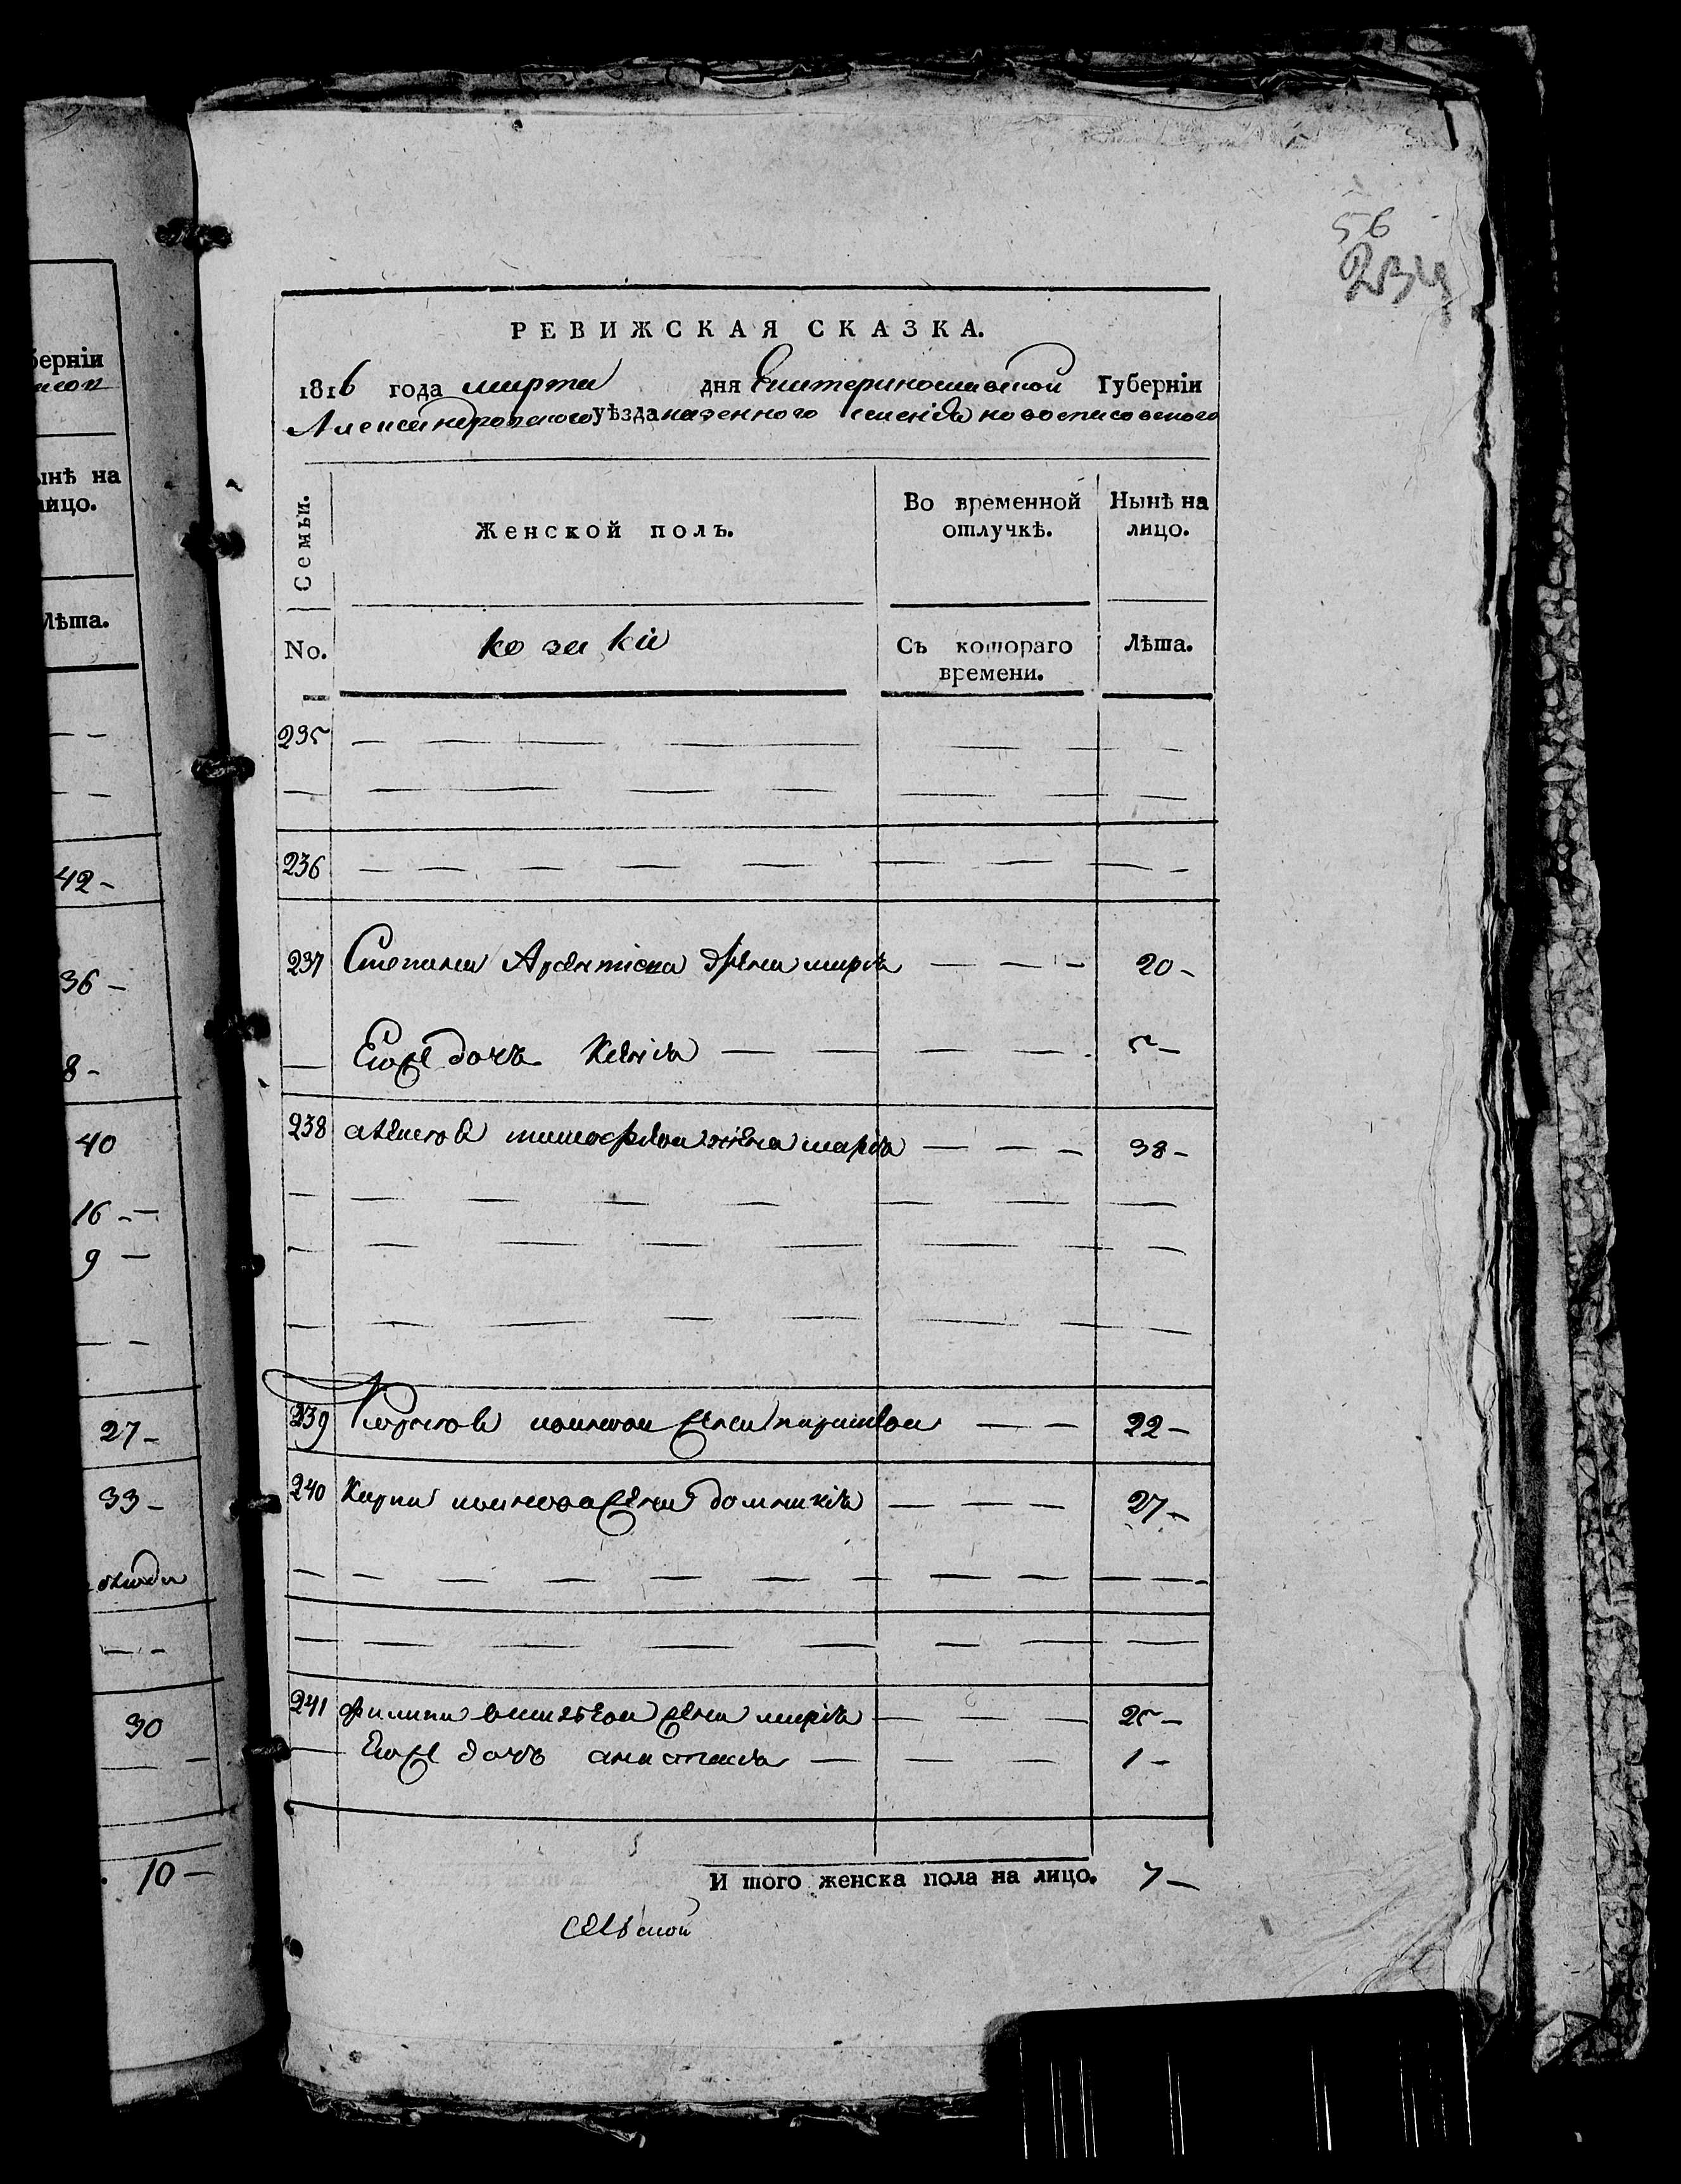 берніи
ынѣ на
лицо.
Лѣта.
42 -
36 -
8 -
40
16 - -
9 -
27 -
33 -
30
10 -
56
РЕВИЖСКАЯ СКАЗКА.
1816 года марта дня Екатеринославской Губерніи
Александровского уѣзда казенного селенія новоспасовского
Семьи.
Женской полъ.
Во временной отлучкѣ.
Нынѣ на лицо.
No.
козаки
Съ котораго времени.
Лѣта.
235 — — — —
236 — — — —
237 Степана жена марія — — - 20 -
Его же дочь Ксенія — — — - 5 -
238 алексѣя тимофѣева жена марія — — - 38 -
239 иванова жена — — 22 -
240 Карпа иванова жена домникія — — - 27 -
241 филипа васильева жена марія — — — 25 -
Его же дочь анастасія — — — 1 -
И того женска пола на лицо. 7 -
сельской